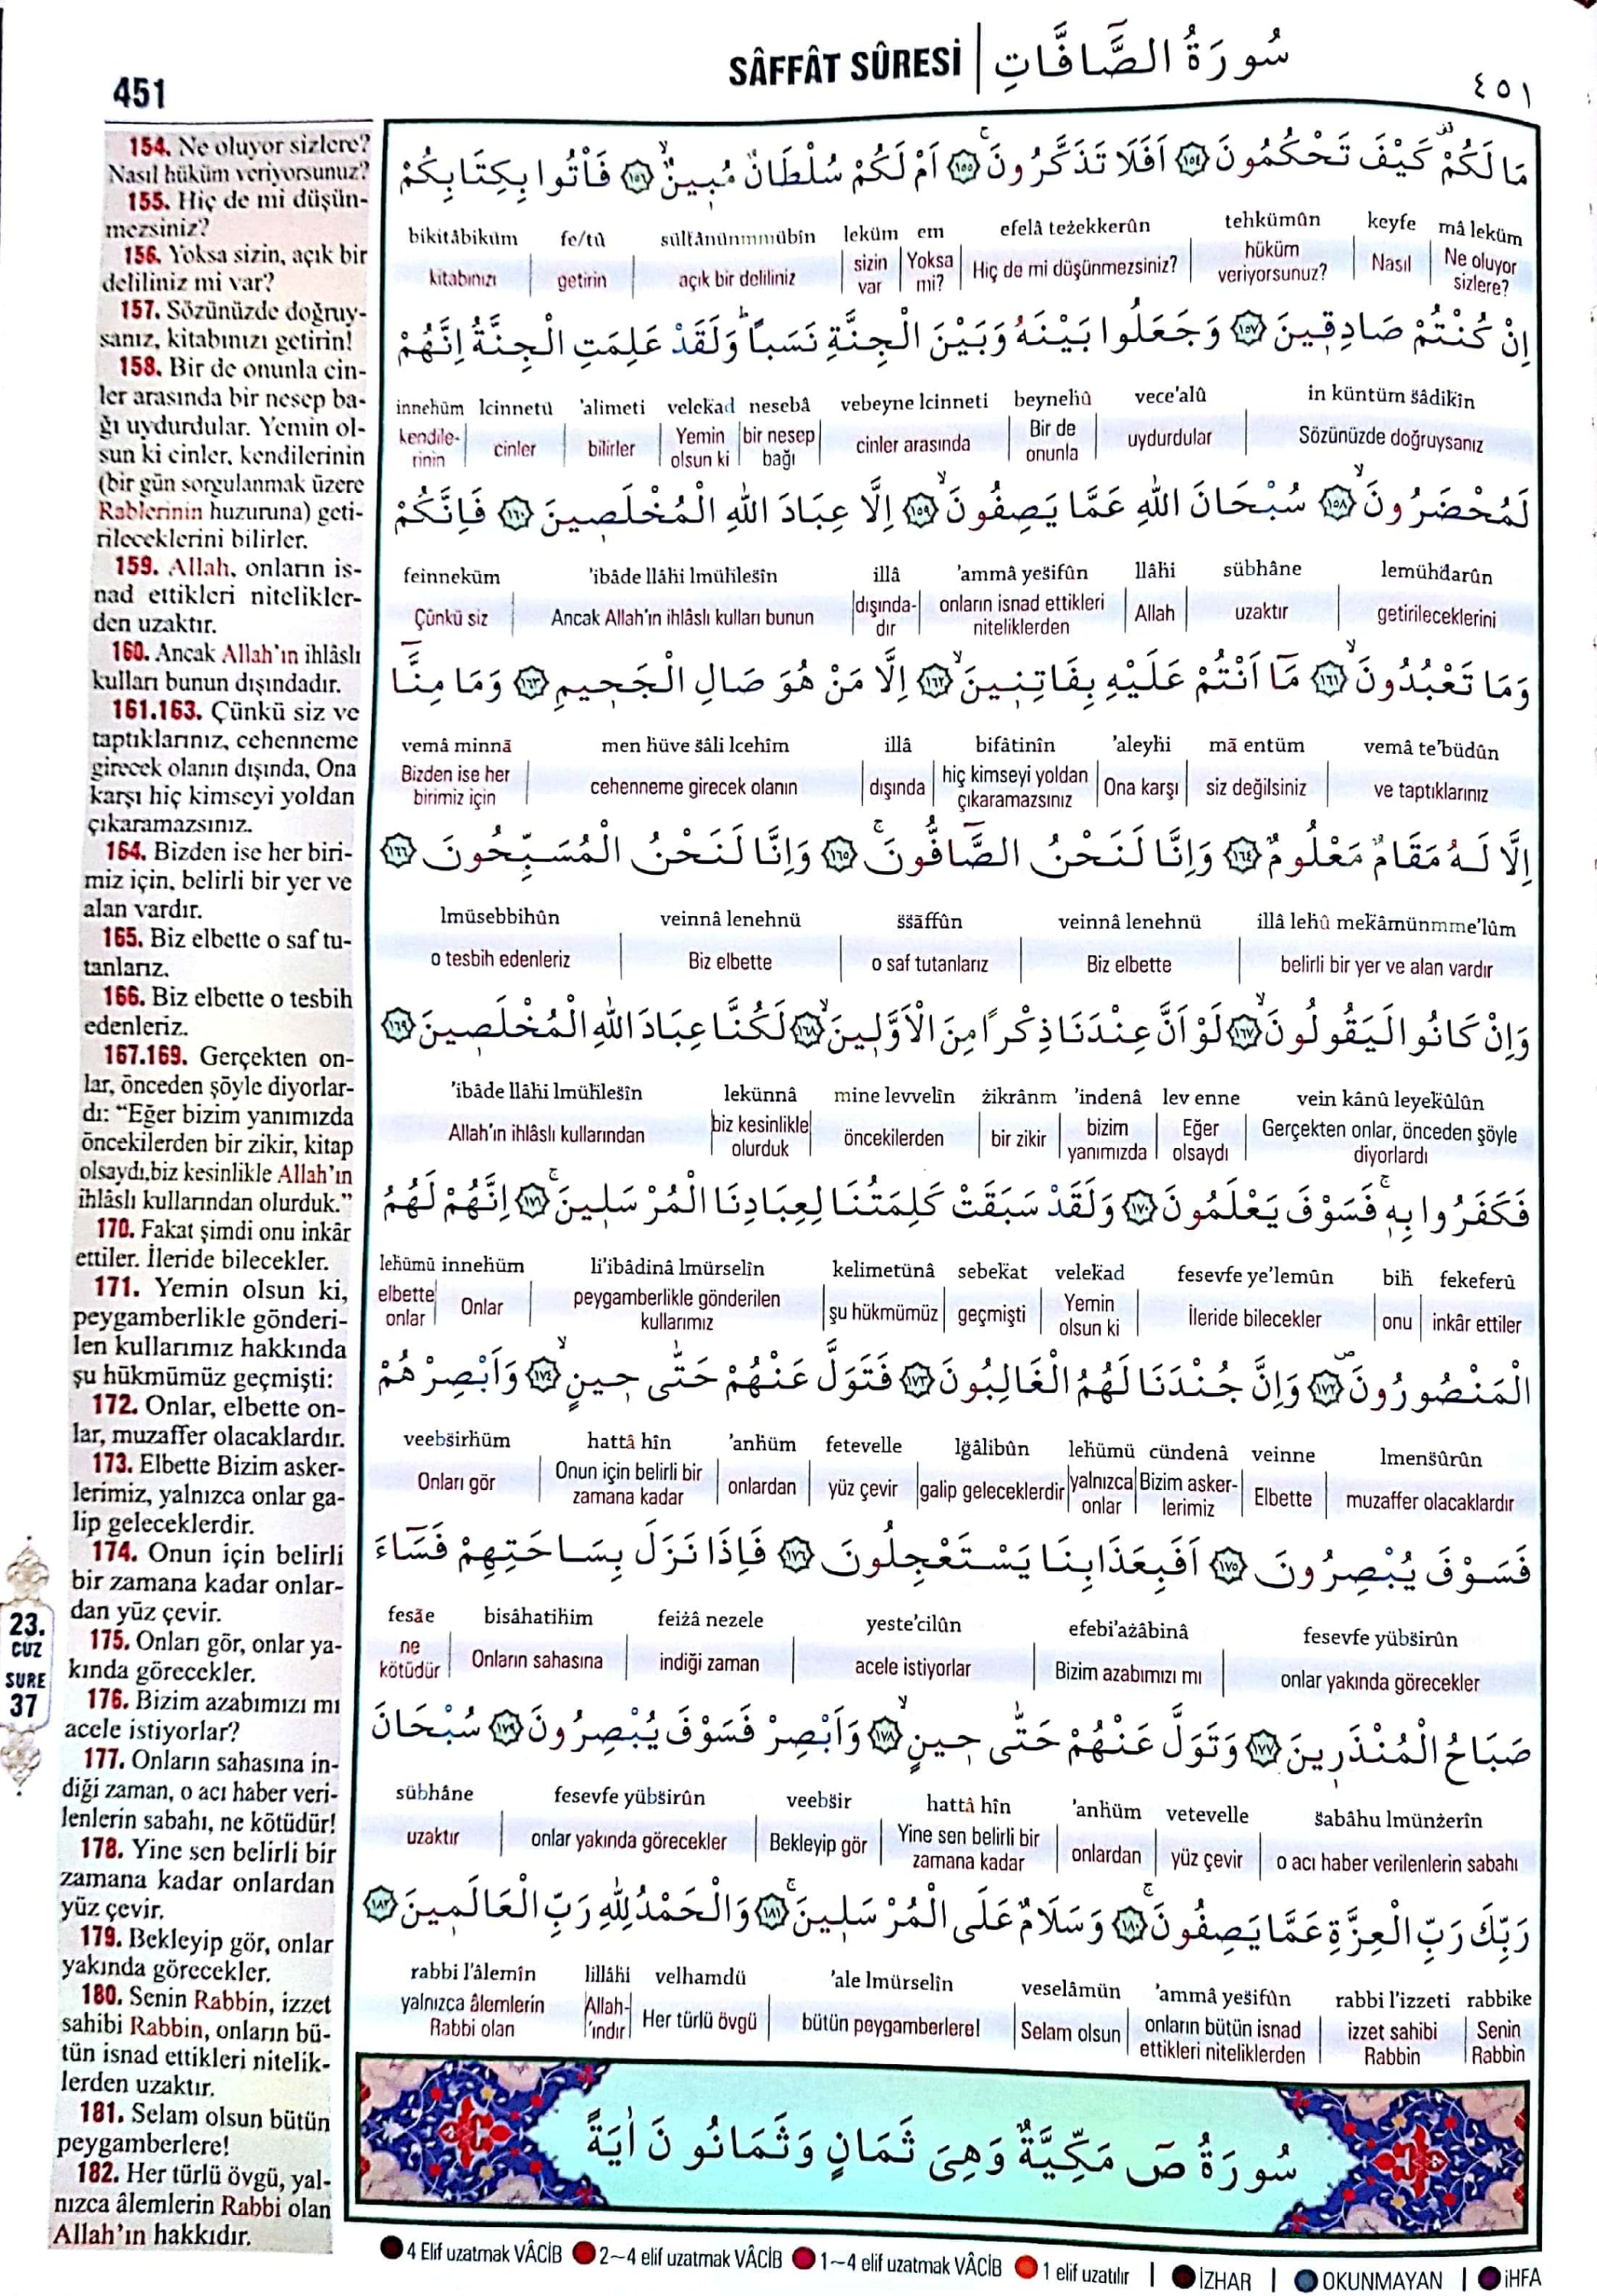 451
SÂFFÂT SÛRESİ | سُورَةُ الصَّٓافَّاتِ
٤٥١
154. Ne oluyor sizlere?
Nasıl hüküm veriyorsunuz?
155. Hiç de mi düşün-
mezsiniz?
156. Yoksa sizin, açık bir
deliliniz mi var?
157. Sözünüzde doğruy-
sanız, kitabınızı getirin!
158. Bir de onunla cin-
ler arasında bir nesep ba-
ğı uydurdular. Yemin ol-
sun ki cinler, kendilerinin
(bir gün sorgulanmak üzere
Rablerinin huzuruna) geti-
rileceklerini bilirler.
159. Allah, onların is-
nad ettikleri nitelikler-
den uzaktır.
160. Ancak Allah'ın ihlâslı
kulları bunun dışındadır.
161.163. Çünkü siz ve
taptıklarınız, cehenneme
girecek olanın dışında, Ona
karşı hiç kimseyi yoldan
çıkaramazsınız.
164. Bizden ise her biri-
miz için, belirli bir yer ve
alan vardır.
165. Biz elbette o saf tu-
tanlarız.
166. Biz elbette o tesbih
edenleriz.
167.169. Gerçekten on-
lar, önceden şöyle diyorlar-
dı: “Eğer bizim yanımızda
öncekilerden bir zikir, kitap
olsaydı,biz kesinlikle Allah'ın
ihlâslı kullarından olurduk.”
170. Fakat şimdi onu inkâr
ettiler. İleride bilecekler.
171. Yemin olsun ki,
peygamberlikle gönderi-
len kullarımız hakkında
şu hükmümüz geçmişti:
172. Onlar, elbette on-
lar, muzaffer olacaklardır.
173. Elbette Bizim asker-
lerimiz, yalnızca onlar ga-
lip geleceklerdir.
174. Onun için belirli
bir zamana kadar onlar-
dan yüz çevir.
175. Onları gör, onlar ya-
kında görecekler.
176. Bizim azabımızı mı
acele istiyorlar?
177. Onların sahasına in-
diği zaman, o acı haber veri-
lenlerin sabahı, ne kötüdür!
178. Yine sen belirli bir
zamana kadar onlardan
yüz çevir.
179. Bekleyip gör, onlar
yakında görecekler.
180. Senin Rabbin, izzet
sahibi Rabbin, onların bü-
tün isnad ettikleri nitelik-
lerden uzaktır.
181. Selam olsun bütün
peygamberlere!
182. Her türlü övgü, yal-
nızca âlemlerin Rabbi olan
Allah'ın hakkıdır.
23.
CÜZ
SURE
37
مَا لَكُمْ۠ كَيْفَ تَحْكُمُونَ ﴿١٥٤﴾ اَفَلَا تَذَكَّرُونَۚ ﴿١٥٥﴾ اَمْ لَكُمْ سُلْطَانٌ مُبٖينٌۙ ﴿١٥٦﴾ فَأْتُوا بِكِتَابِكُمْ
bikitâbiküm fe/tû sültânünmmübîn leküm em efelâ teżekkerûn tehkümûn keyfe mâ leküm
kitabınızı | getirin | açık bir deliliniz | sizin var | Yoksa mı? | Hiç de mi düşünmezsiniz? | hüküm veriyorsunuz? | Nasıl | Ne oluyor sizlere?
اِنْ كُنْتُمْ صَادِقٖينَ ﴿١٥٧﴾ وَجَعَلُوا بَيْنَهُ وَبَيْنَ الْجِنَّةِ نَسَباًؕ وَلَقَدْ عَلِمَتِ الْجِنَّةُ اِنَّهُمْ
innehüm lcinnetü 'alimeti velekad nesebâ vebeyne lcinneti beynehû vece'alû in küntüm sâdikîn
kendile-rinin | cinler | bilirler | Yemin olsun ki | bir nesep bağı | cinler arasında | Bir de onunla | uydurdular | Sözünüzde doğruysanız
لَمُحْضَرُونَۙ ﴿١٥٨﴾ سُبْحَانَ اللهِ عَمَّا يَصِفُونَۙ ﴿١٥٩﴾ اِلَّا عِبَادَ اللهِ الْمُخْلَصٖينَ ﴿١٦٠﴾ فَاِنَّكُمْ
feinneküm 'ibâde llâhi lmühlesîn illâ 'ammâ yesifûn llâhi sübhâne lemühdarûn
Çünkü siz | Ancak Allah'ın ihlâslı kulları bunun | dışında-dır | onların isnad ettikleri niteliklerden | Allah | uzaktır | getirileceklerini
وَمَا تَعْبُدُونَۙ ﴿١٦١﴾ مَٓا اَنْتُمْ عَلَيْهِ بِفَاتِنٖينَۙ ﴿١٦٢﴾ اِلَّا مَنْ هُوَ صَالِ الْجَحٖيمِ ﴿١٦٣﴾ وَمَا مِنَّٓا
vemâ minnā men hüve sâli lcehîm illâ bifâtinîn 'aleyhi mā entüm vemâ te'büdûn
Bizden ise her birimiz için | cehenneme girecek olanın | dışında | hiç kimseyi yoldan çıkaramazsınız | Ona karşı | siz değilsiniz | ve taptıklarınız
اِلَّا لَهُ مَقَامٌ مَعْلُومٌ ﴿١٦٤﴾ وَاِنَّا لَنَحْنُ الصَّٓافُّونَۚ ﴿١٦٥﴾ وَاِنَّا لَنَحْنُ الْمُسَبِّحُونَ ﴿١٦٦﴾
lmüsebbihûn veinnâ lenehnü ssāffûn veinnâ lenehnü illâ lehû mekâmünmme'lûm
o tesbih edenleriz | Biz elbette | o saf tutanlarız | Biz elbette | belirli bir yer ve alan vardır
وَاِنْ كَانُوا لَيَقُولُونَۙ ﴿١٦٧﴾ لَوْ اَنَّ عِنْدَنَا ذِكْراً مِنَ الْاَوَّلٖينَۙ ﴿١٦٨﴾ لَكُنَّا عِبَادَ اللهِ الْمُخْلَصٖينَ ﴿١٦٩﴾
'ibâde llâhi lmühlesîn lekünnâ mine levvelîn żikrânm 'indenâ lev enne vein kânû leyekûlûn
Allah'ın ihlâslı kullarından | biz kesinlikle olurduk | öncekilerden | bir zikir | bizim yanımızda | Eğer olsaydı | Gerçekten onlar, önceden şöyle diyorlardı
فَكَفَرُوا بِهٖۚ فَسَوْفَ يَعْلَمُونَ ﴿١٧٠﴾ وَلَقَدْ سَبَقَتْ كَلِمَتُنَا لِعِبَادِنَا الْمُرْسَلٖينَۚ ﴿١٧١﴾ اِنَّهُمْ لَهُمُ
lehümü innehüm li'ibâdinâ lmürselîn kelimetünâ sebekat velekad fesevfe ye'lemûn bih fekeferû
elbette onlar | Onlar | peygamberlikle gönderilen kullarımız | şu hükmümüz | geçmişti | Yemin olsun ki | İleride bilecekler | onu | inkâr ettiler
الْمَنْصُورُونَࣕ ﴿١٧٢﴾ وَاِنَّ جُنْدَنَا لَهُمُ الْغَالِبُونَ ﴿١٧٣﴾ فَتَوَلَّ عَنْهُمْ حَتّٰى حٖينٍۙ ﴿١٧٤﴾ وَاَبْصِرْهُمْ
veebsirhüm hattâ hîn 'anhüm fetevelle lğâlibûn lehümü cündenâ veinne lmensûrûn
Onları gör | Onun için belirli bir zamana kadar | onlardan | yüz çevir | galip geleceklerdir | yalnızca onlar | Bizim asker-lerimiz | Elbette | muzaffer olacaklardır
فَسَوْفَ يُبْصِرُونَ ﴿١٧٥﴾ اَفَبِعَذَابِنَا يَسْتَعْجِلُونَ ﴿١٧٦﴾ فَاِذَا نَزَلَ بِسَاحَتِهِمْ فَسَٓاءَ
fesāe bisâhatihim feiżâ nezele yeste'cilûn efebi'ażâbinâ fesevfe yübsirûn
ne kötüdür | Onların sahasına | indiği zaman | acele istiyorlar | Bizim azabımızı mı | onlar yakında görecekler
صَبَاحُ الْمُنْذَرٖينَ ﴿١٧٧﴾ وَتَوَلَّ عَنْهُمْ حَتّٰى حٖينٍۙ ﴿١٧٨﴾ وَاَبْصِرْ فَسَوْفَ يُبْصِرُونَ ﴿١٧٩﴾ سُبْحَانَ
sübhâne fesevfe yübsirûn veebsir hattâ hîn 'anhüm vetevelle sabâhu lmünżerîn
uzaktır | onlar yakında görecekler | Bekleyip gör | Yine sen belirli bir zamana kadar | onlardan | yüz çevir | o acı haber verilenlerin sabahı
رَبِّكَ رَبِّ الْعِزَّةِ عَمَّا يَصِفُونَۚ ﴿١٨٠﴾ وَسَلَامٌ عَلَى الْمُرْسَلٖينَۚ ﴿١٨١﴾ وَالْحَمْدُ لِلّٰهِ رَبِّ الْعَالَمٖينَ ﴿١٨٢﴾
rabbi l'âlemîn lillâhi velhamdü 'ale lmürselîn veselâmün 'ammâ yesifûn rabbi l'izzeti rabbike
yalnızca âlemlerin Rabbi olan | Allah-'ındır | Her türlü övgü | bütün peygamberlere! | Selam olsun | onların bütün isnad ettikleri niteliklerden | izzet sahibi Rabbin | Senin Rabbin
سُورَةُ صٓ مَكِّيَّةٌ وَهِىَ ثَمَانٍ وَثَمَانُونَ اٰيَةً
4 Elif uzatmak VÂCİB 2~4 elif uzatmak VÂCİB 1~4 elif uzatmak VÂCİB 1 elif uzatılır | İZHAR | OKUNMAYAN | İHFA